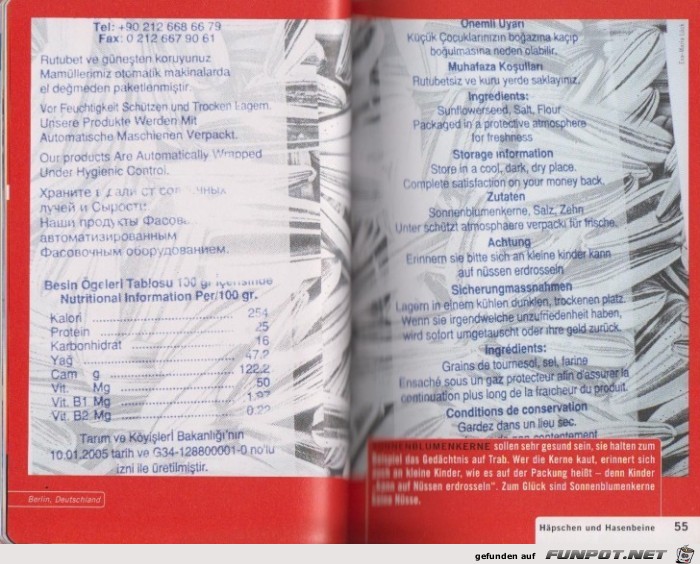 Tel: +90 212 668 66 79
Fax: 0 212 667 90 61
Rutubet ve güneşten koruyunuz
Mamüllerimiz otomatik makinalarda
el değmeden paketlenmiştir.
Vor Feuchtigkeit Schützen und Trocken Lagern.
Unsere Produkte Werden Mit
Automatische Maschienen Verpackt.
Our products Are Automatically Wrapped
Under Hygienic Control.
Храните
лучей и Сырости
Наши продукты Фасова
автоматизированным
Фасовочным оборудованием.
Besin Ögeleri Tablosu 100 gr içerisinde
Nutritional Information Per/100 gr.
Kalori 254
Protein 25
Karbonhidrat 16
Yağ 47,2
Cam g 122,2
Vit. Mg 50
Vit. B1 Mg 1,97
Vit. B2 Mg 0,22
Tarım ve Köyişleri Bakanlığı'nın
10.01.2005 tarih ve G34-128800001-0 no'lu
izni ile üretilmiştir.
Berlin, Deutschland
Önemli Uyarı
Küçük Çocuklarınızın boğazına kaçıp
boğulmasına neden olabilir.
Muhafaza Koşulları
Rutubetsiz ve kuru yerde saklayınız.
Ingredients:
Sunflowerseed, Salt, Flour
Packaged in a protective atmosphere
for freshness
Storage information
Store in a cool, dark, dry place.
Complete satisfaction on your money back.
Zutaten
Sonnenblumenkerne, Salz, Zehn
Unter schützt atmosphaere verpackt für frische.
Achtung
Erinnern sie bitte sich an kleine kinder kann
auf nüssen erdrosseln
Sicherungmassnahmen
Lagern in einem kühlen dunklen, trockenen platz.
Wenn sie irgendwelche unzufriedenheit haben,
wird sofort umgetauscht oder ihre geld zurück.
Ingrédients:
Grains de tournesol, sel, farine
Ensaché sous un gaz protecteur afin d'assurer la
continuation plus long de la fraicheur du produit.
Conditions de conservation
Gardez dans un lieu sec.
SONNENBLUMENKERNE sollen sehr gesund sein, sie halten zum
Beispiel das Gedächtnis auf Trab. Wer die Kerne kaut, erinnert sich
auch an kleine Kinder, wie es auf der Packung heißt – denn Kinder
„kann auf Nüssen erdrosseln“. Zum Glück sind Sonnenblumenkerne
keine Nüsse.
Häpschen und Hasenbeine 55
gefunden auf FUNPOT.NET